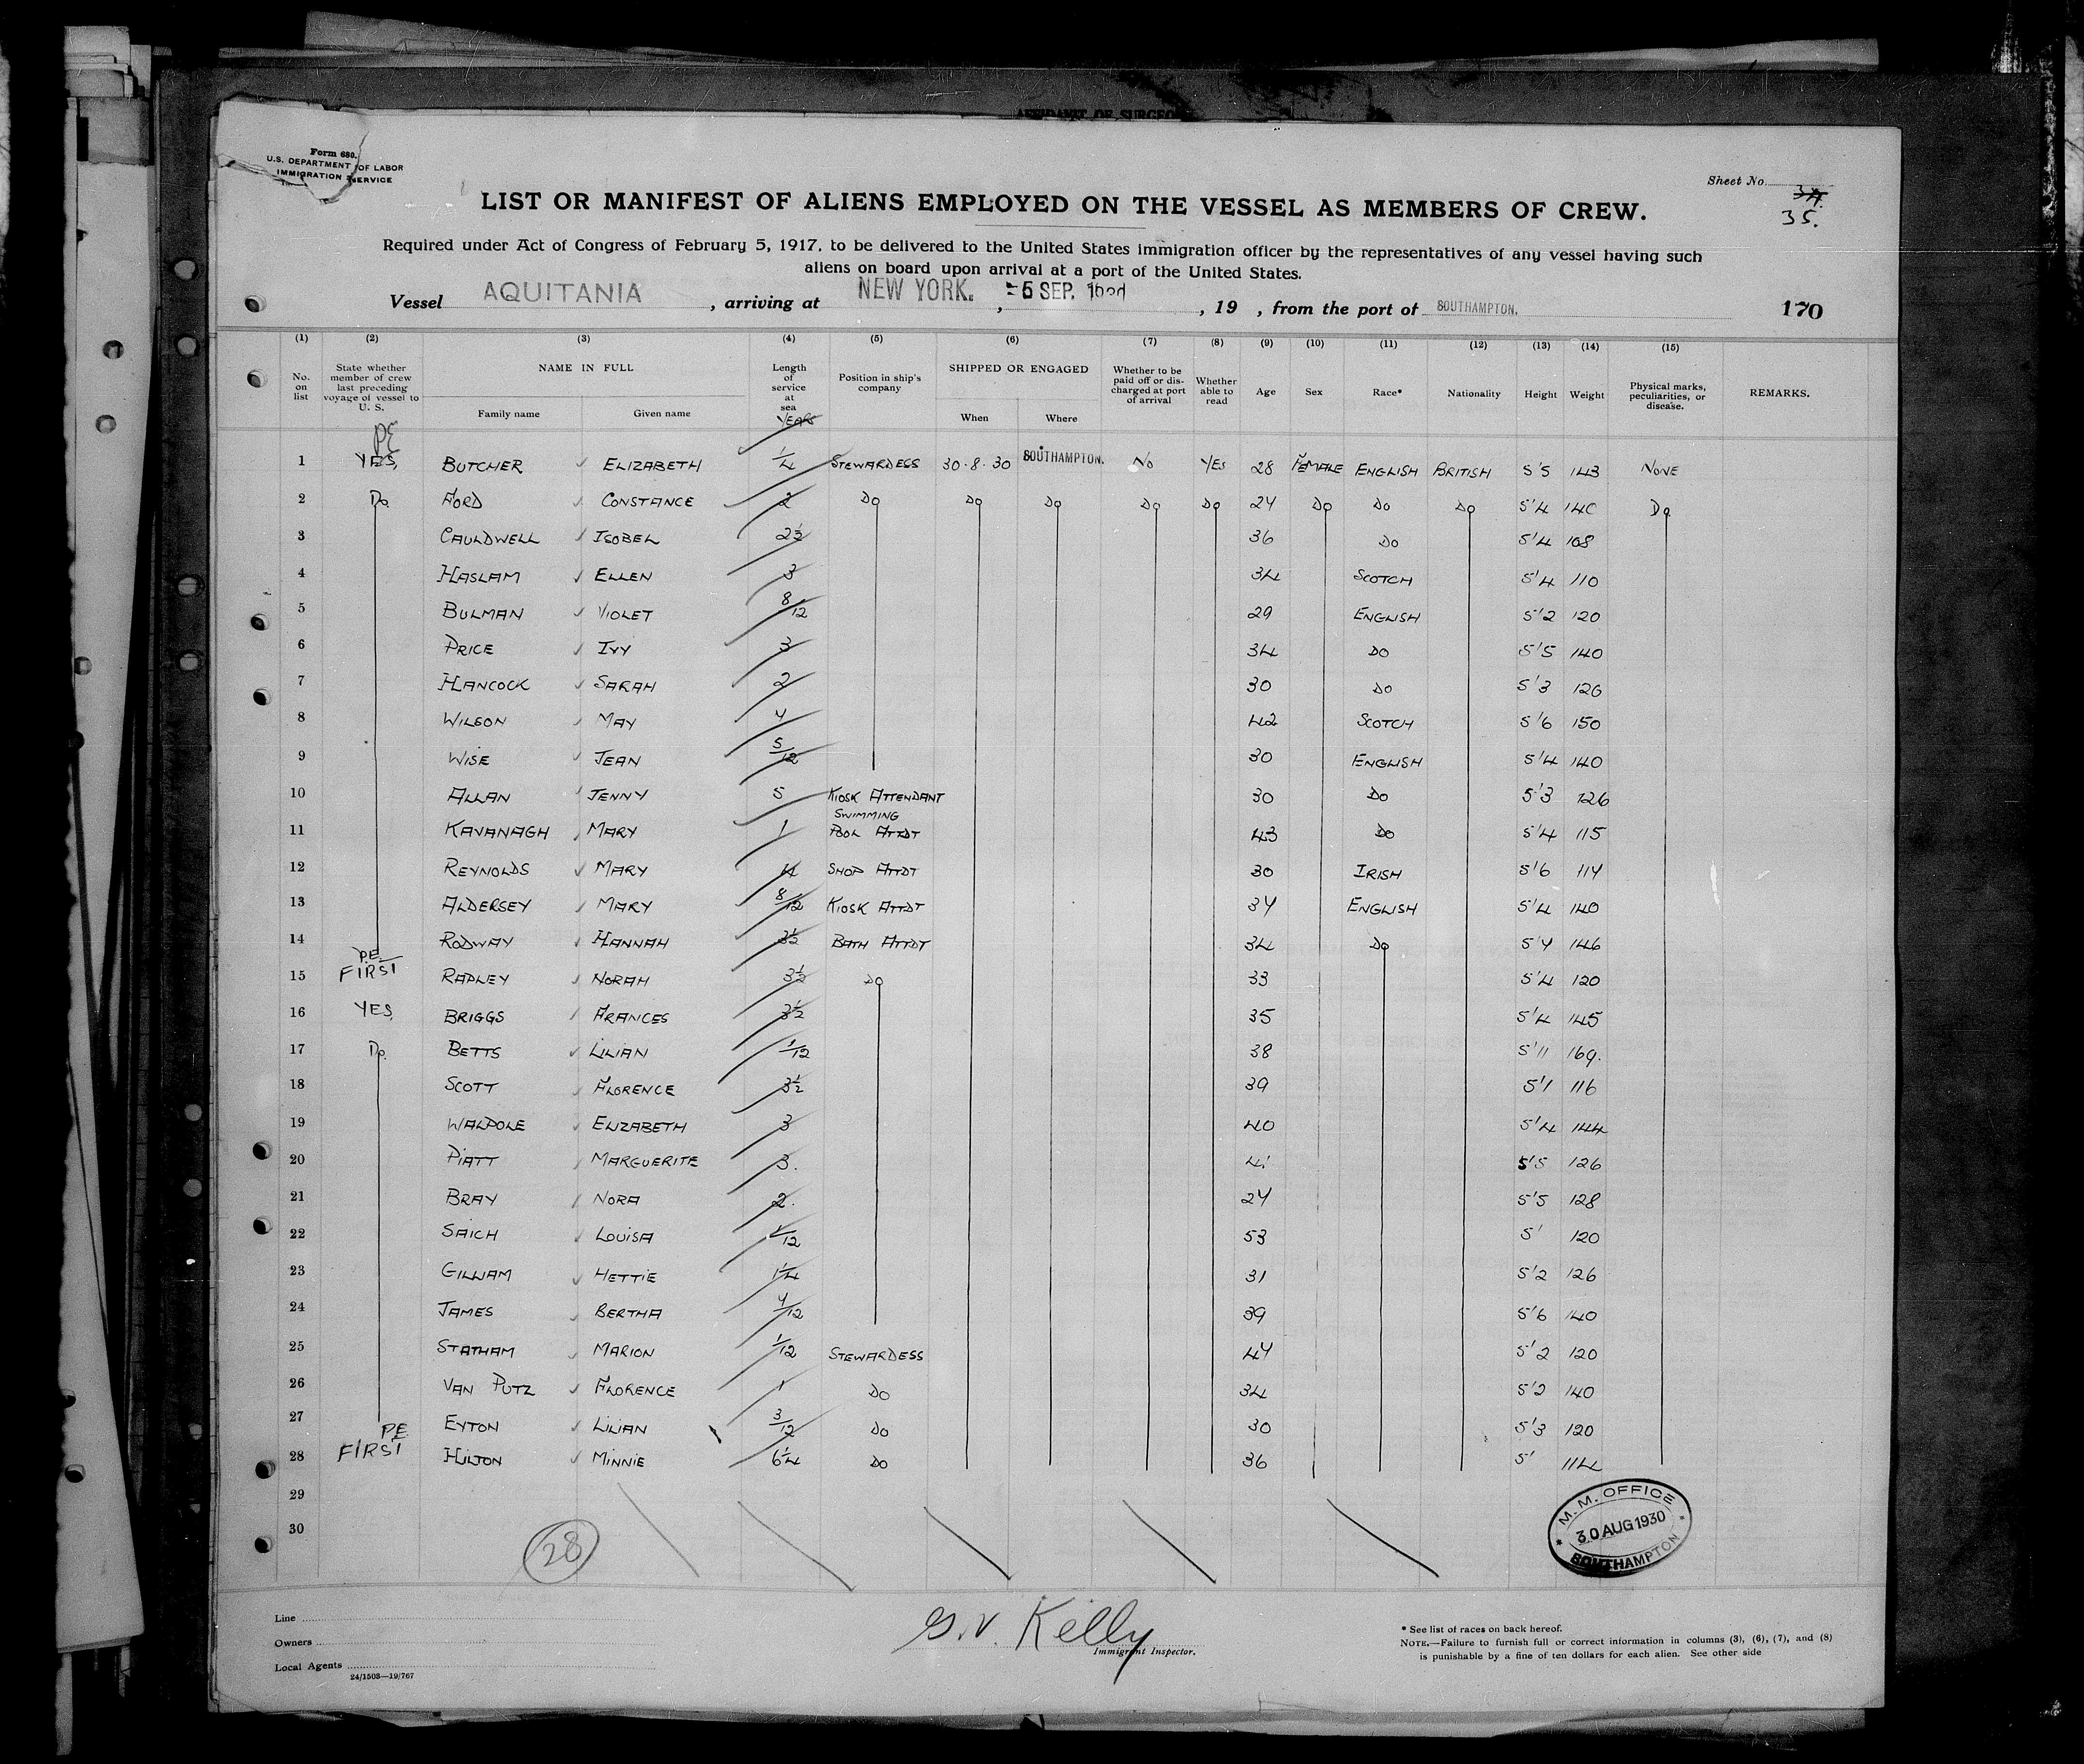 AFFIDAVIT OF SURGEO
Form 680.
U.S. DEPARTMENT OF LABOR
IMMIGRATION SERVICE
Sheet No.
35.
LIST OR MANIFEST OF ALIENS EMPLOYED ON THE VESSEL AS MEMBERS OF CREW.
Required under Act of Congress of February 5, 1917, to be delivered to the United States immigration officer by the representatives of any vessel having such
aliens on board upon arrival at a port of the United States.
Vessel AQUITANIA, arriving at NEW YORK. , 5 SEP. , 19 , from the port of SOUTHAMPTON. 170
(1) (2) (3) (4) (5) (6) (7) (8) (9) (10) (11) (12) (13) (14) (15)
No. on list State whether member of crew last preceding voyage of vessel to U. S. NAME IN FULL Family name Given name Length of service at sea YEARS Position in ship's company SHIPPED OR ENGAGED When Where Whether to be paid off or discharged at port of arrival Whether able to read Age Sex Race* Nationality Height Weight Physical marks, peculiarities, or disease. REMARKS.
PE
1 YES, BUTCHER ELIZABETH 1/4 STEWARDESS 30.8.30 SOUTHAMPTON. NO YES 28 FEMALE ENGLISH BRITISH 5'5 143 NONE
2 Do FORD CONSTANCE 2 Do Do Do Do Do 24 Do Do Do 5'4 140 Do
3 CAULDWELL ISOBEL 2½ 36 DO 5'4 108
4 HASLAM ELLEN 3 34 SCOTCH 5'4 110
5 BULMAN VIOLET 8/12 29 ENGLISH 5'2 120
6 PRICE IVY 3 34 DO 5'5 140
7 HANCOCK SARAH 2 30 DO 5'3 126
8 WILSON MAY 4 42 SCOTCH 5'6 150
9 WISE JEAN 5/12 30 ENGLISH 5'4 140
10 ALLAN JENNY 5 KIOSK ATTENDANT 30 DO 5'3 126
11 KAVANAGH MARY 1 SWIMMING POOL ATTDT 43 DO 5'4 115
12 REYNOLDS MARY 4 SHOP ATTDT 30 IRISH 5'6 114
13 ALDERSEY MARY 8/12 KIOSK ATTDT 34 ENGLISH 5'4 140
14 RODWAY HANNAH 3½ BATH ATTDT 34 Do 5'4 146
PE
15 FIRST RADLEY NORAH 3½ DO 33 5'4 120
16 YES BRIGGS FRANCES 3½ 35 5'4 145
17 Do. BETTS LILIAN 1/12 38 5'11 169.
18 SCOTT FLORENCE 3½ 39 5'1 116
19 WALPOLE ELIZABETH 3 40 5'4 144
20 PIATT MARGUERITE 3. 41 5'5 126
21 BRAY NORA 2. 24 5'5 128
22 SAICH LOUISA 1/12 53 5' 120
23 GILLIAM HETTIE 1¼ 31 5'2 126
24 JAMES BERTHA 4/12 39 5'6 140
25 STATHAM MARION 1/12 STEWARDESS 44 5'2 120
26 VAN PUTZ FLORENCE 1 DO 34 5'2 140
27 EYTON LILIAN 3/12 DO 30 5'3 120
PE
28 FIRST HILTON MINNIE 6¼ DO 36 5' 114
29
30
28
M. M. OFFICE
30 AUG 1930
SOUTHAMPTON
Line
Owners
Local Agents
24/1503—19/767
G.V. Kelly
Immigrant Inspector.
* See list of races on back hereof.
NOTE.—Failure to furnish full or correct information in columns (3), (6), (7), and (8)
is punishable by a fine of ten dollars for each alien. See other side